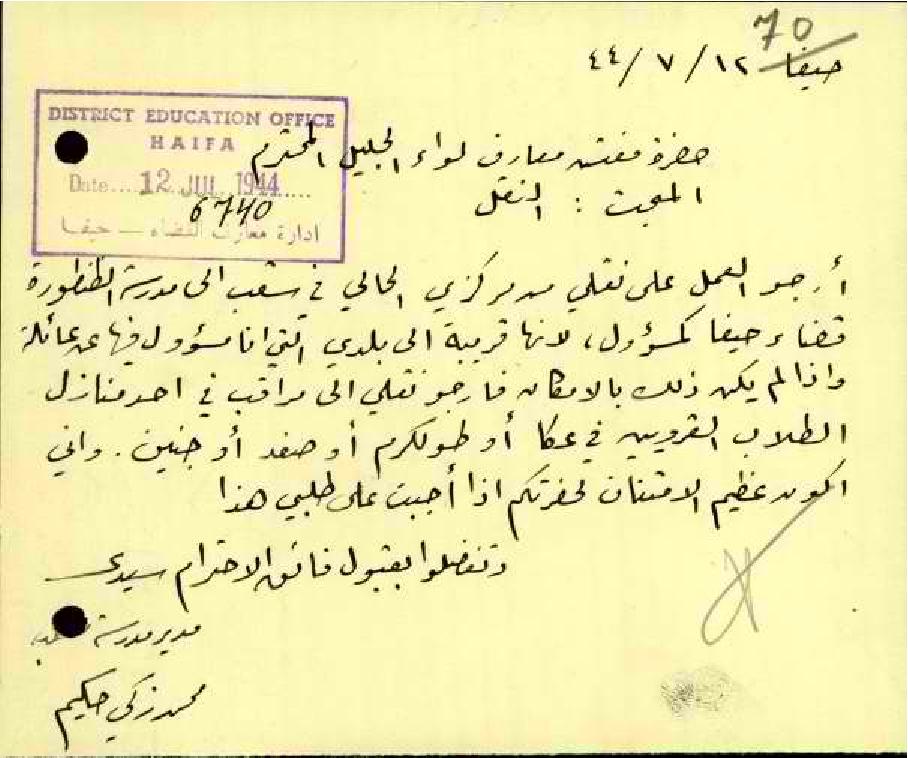 70
حيفا ١٢ / ٧ / ٤٤
DISTRICT EDUCATION OFFICE
HAIFA
Date.... 12 JUL 1944.....
6740
ادارة معارف القضاء — حيفا
حضرة مفتش معارف لواء الجليل المحترم
المبحث : النقل
أرجو العمل على نقلي من مركزي الحالي في شعب الى مدرسة الطنطورة
قضاء حيفا كمسؤول، لانها قريبة الى بلدي التي انا مسؤول فيها عن عائلة
واذا لم يكن ذلك بالامكان فارجو نقلي الى مراقب في احد منازل
الطلاب القرويين في عكا أو طولكرم أو صفد أو جنين. واني
اكون عظيم الامتنان لحضرتكم اذا أجبت على طلبي هذا
وتفضلوا بقبول فائق الاحترام سيدي
مدير مدرسة
محمد زكي حكيم